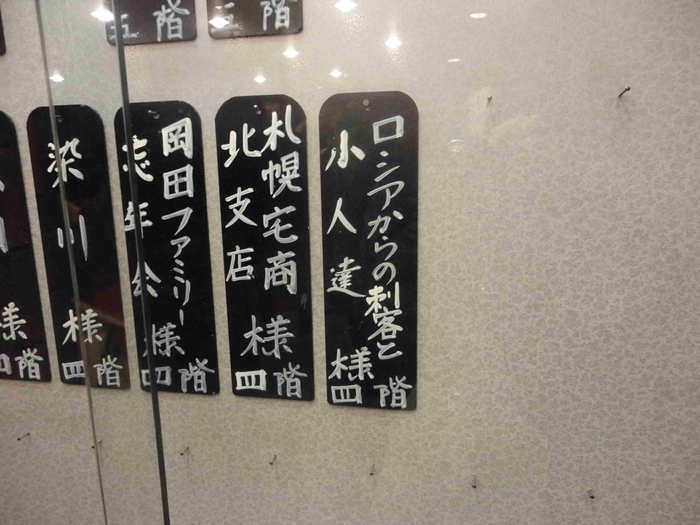 五階
五階
ロシアからの刺客と
小人達
様
四階
札幌宅商
北支店
様
四階
岡田ファミリー
忘年会
様
四階
染川
様
四階
様
四階